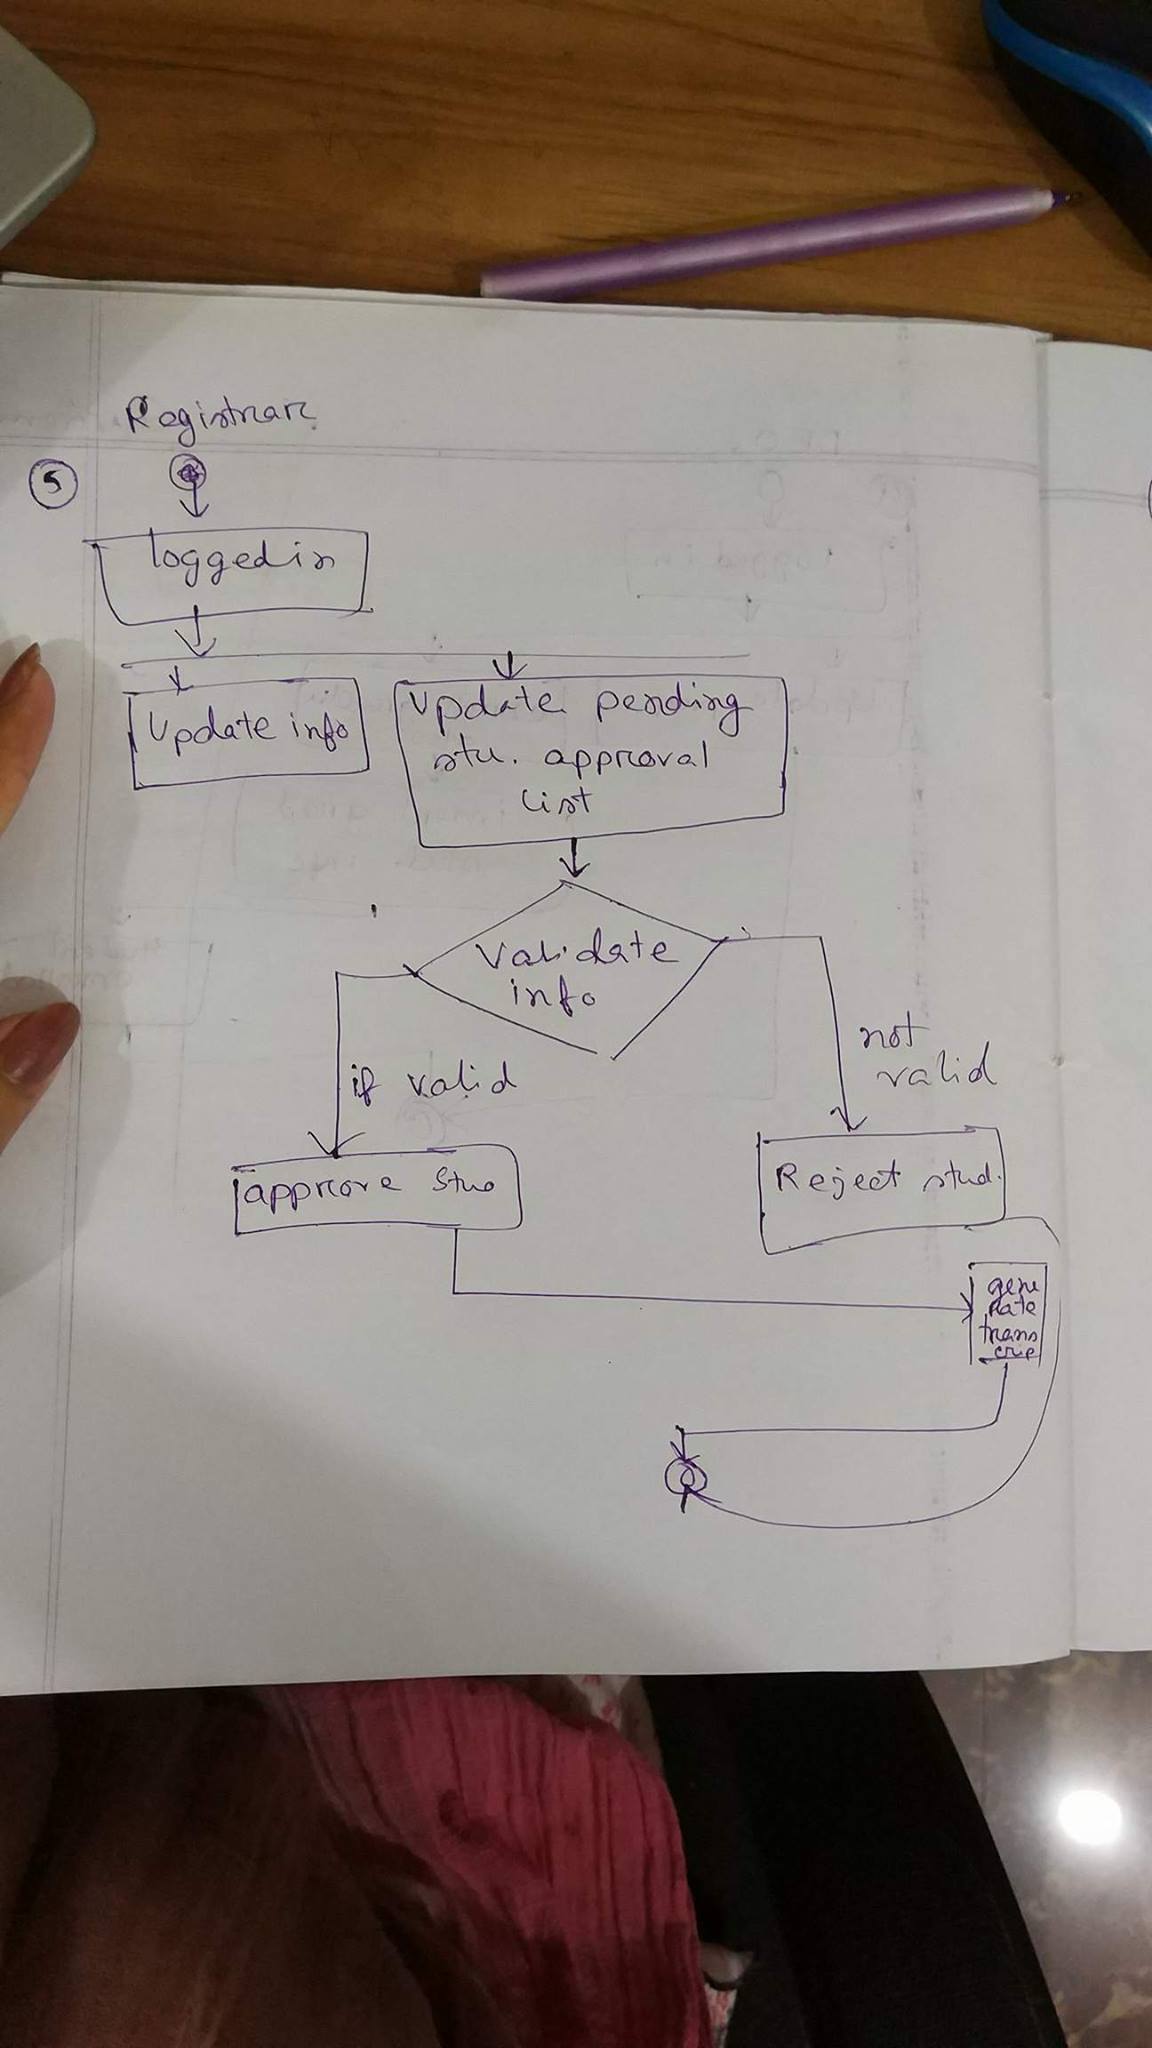 Registrar
5
loggedin
Update info
Update pending
stu. approval
List
Validate
info
if valid
not
valid
approve Stu
Reject stud.
gene
rate
trans
crip